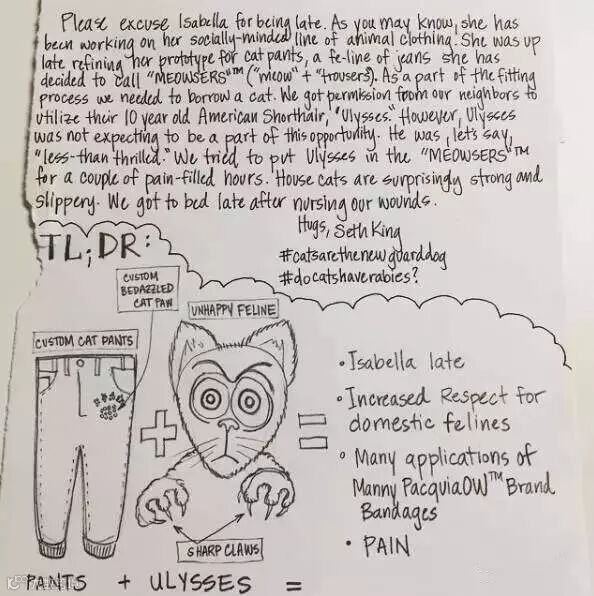 Please excuse Isabella for being late. As you may know, she has
been working on her socially-minded line of animal clothing. She was up
late refining her prototype for cat pants, a fe-line of jeans she has
decided to call "MEOWSERS"™ ("meow" + "trousers). As a part of the fitting
process we needed to borrow a cat. We got permission from our neighbors to
utilize their 10 year old American Shorthair, "Ulysses." However, Ulysses
was not expecting to be a part of this opportunity. He was, let's say,
"less-than thrilled." We tried to put Ulysses in the "MEOWSERS"™
for a couple of pain-filled hours. House cats are surprisingly strong and
slippery. We got to bed late after nursing our wounds.
Hugs, Seth King
#catsarethenewguarddog
#docatshaverabies?
TL;DR:
CUSTOM
BEDAZZLED
CAT PAW
UNHAPPY FELINE
CUSTOM CAT PANTS
+
=
• Isabella late
• Increased Respect for
domestic felines
• Many applications of
Manny PacquiaOW™ Brand
Bandages
• PAIN
SHARP CLAWS
PANTS + ULYSSES =